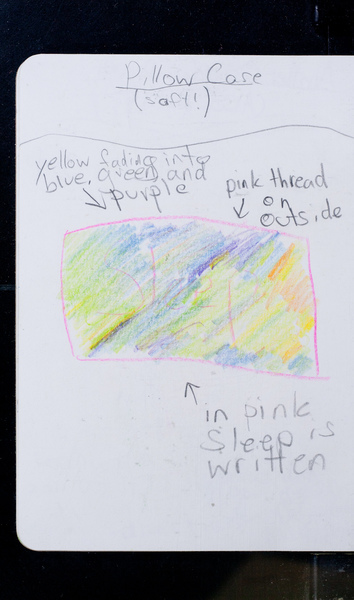 Pillow Case
(soft!)
yellow fading into
blue, green, and
purple
pink thread
on
outside
in pink
Sleep is
written